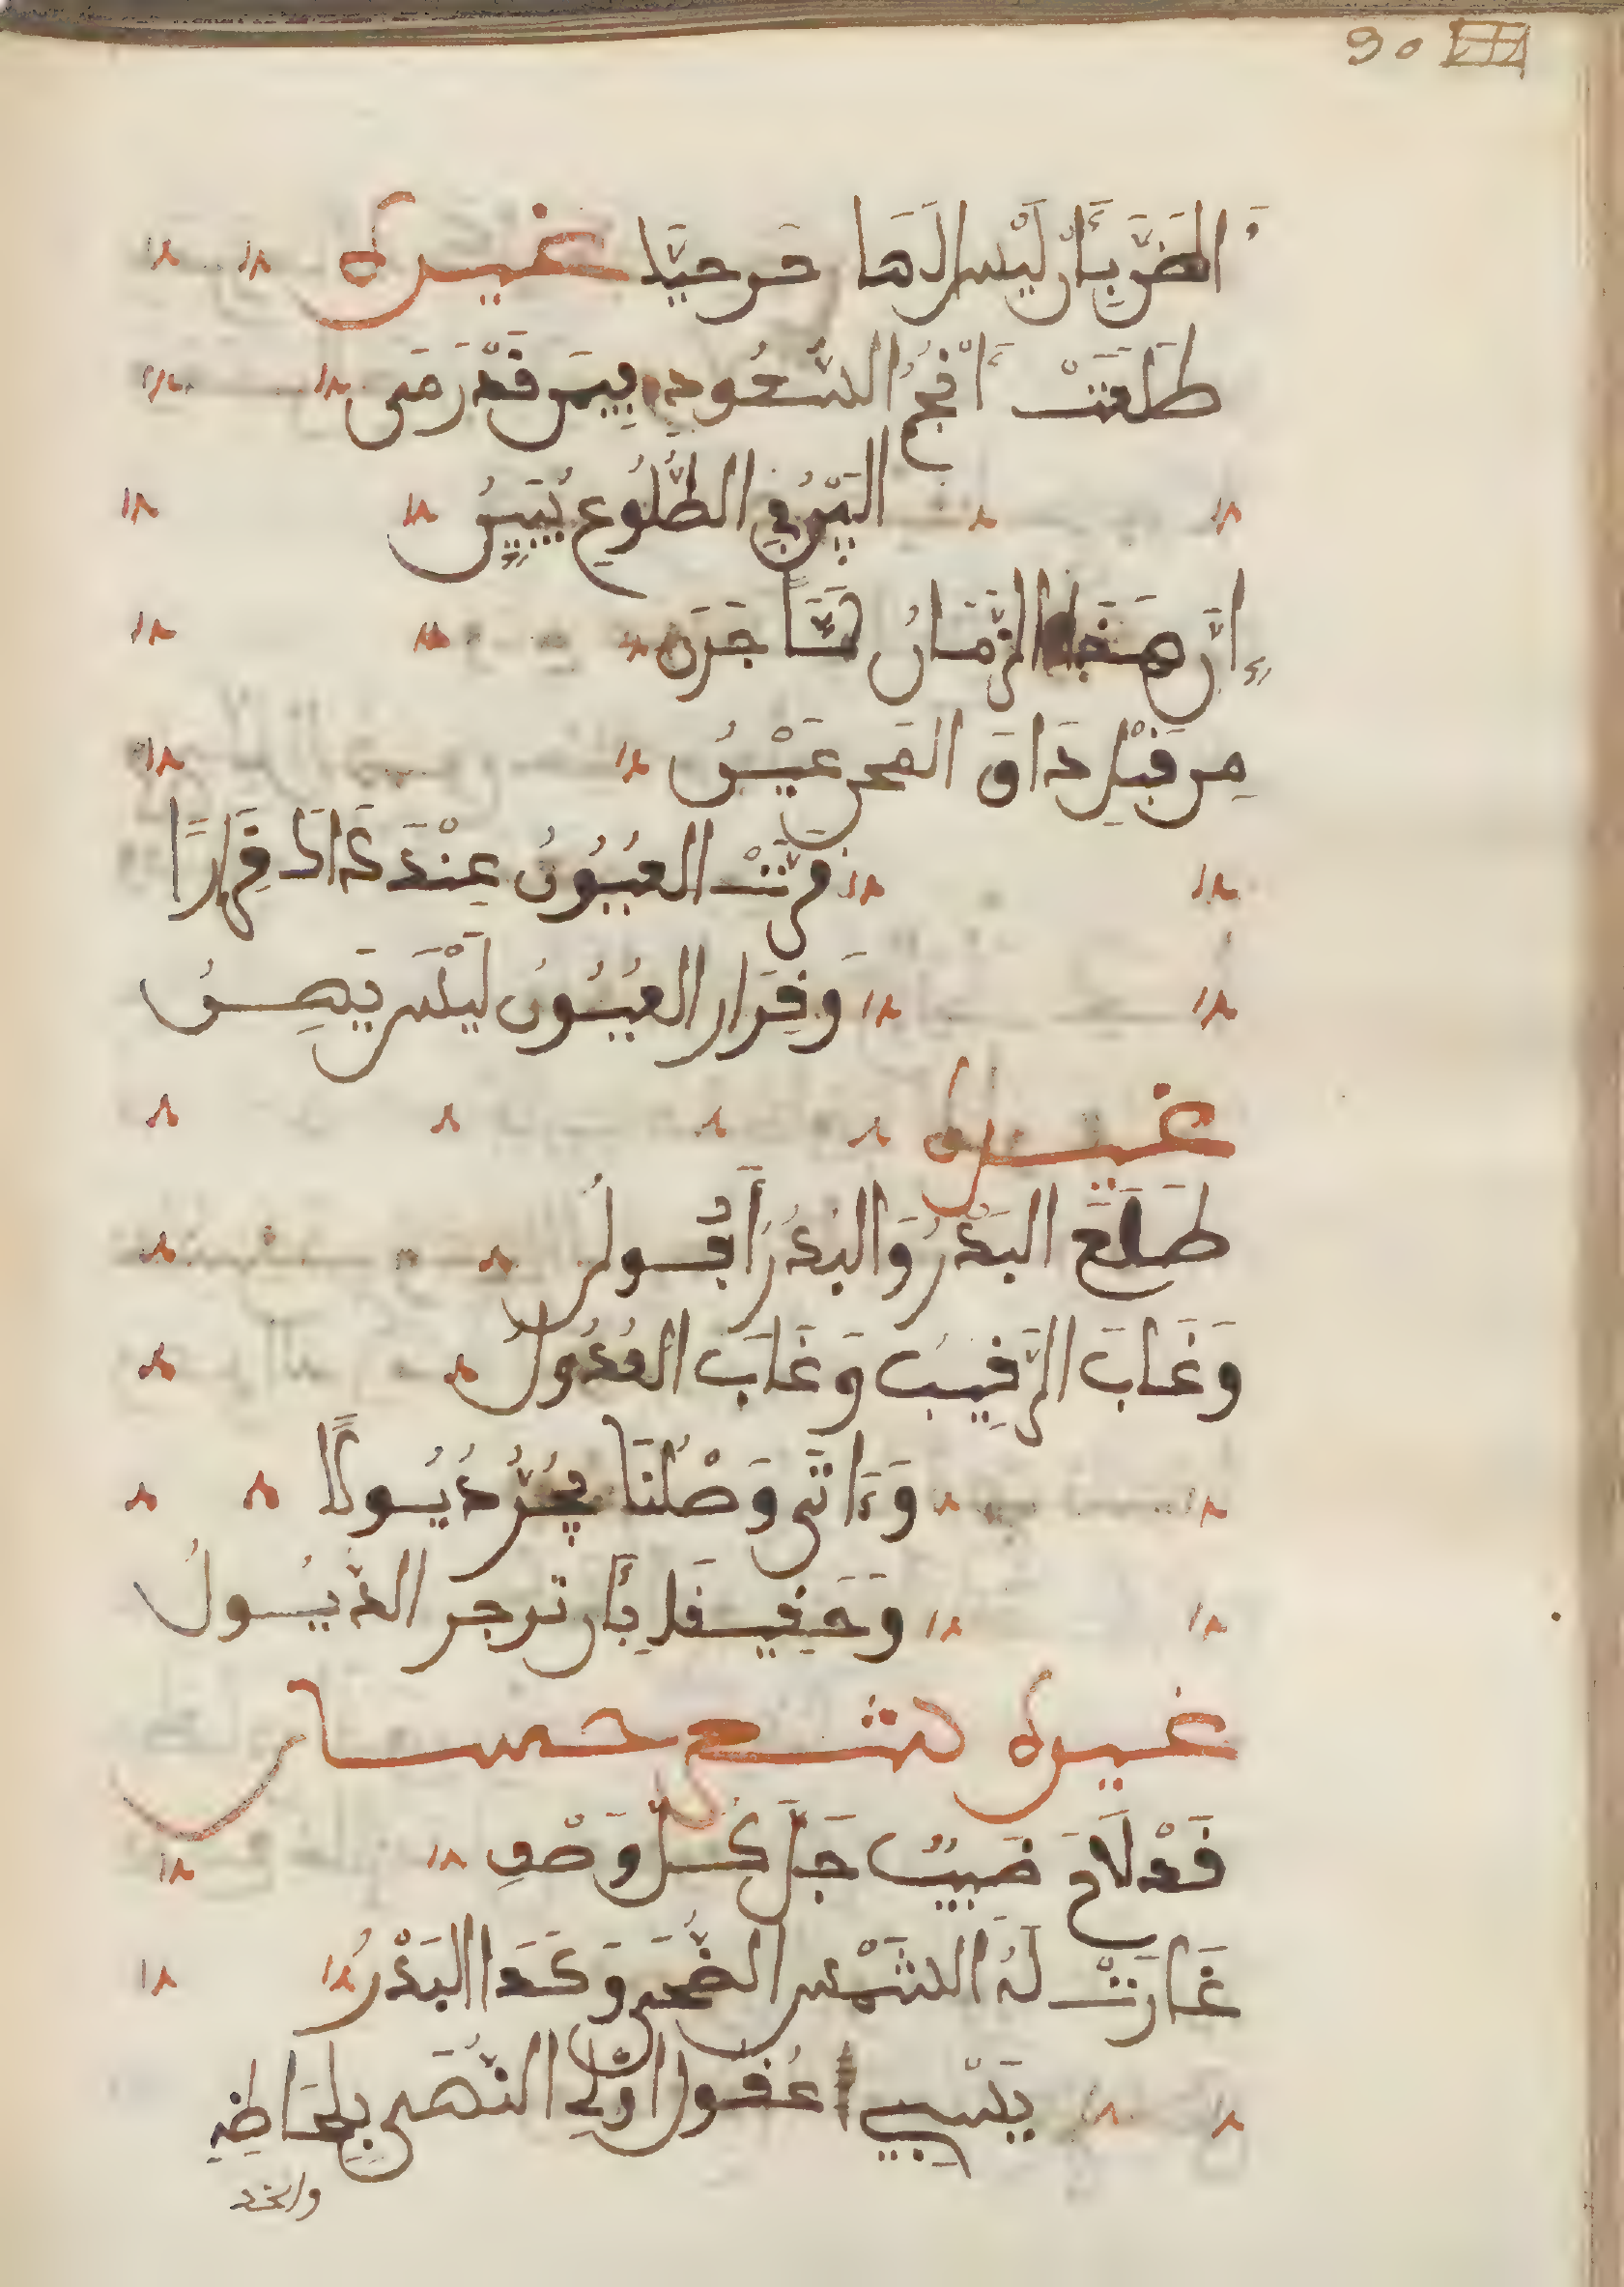 90
الضَّرّ بِأَن لَيْسَ لَهَا حَرحيَّا غيره
طَلَعَتْ أَنْجُمُ السُّعُودِ بِيمن قَدْ رَمَى
اليَمْنُ فِي الطُّلُوعِ يُبِينُ
إِنَّ هَذَا الزَّمَانُ لَمَّا جَرَى
مِن قَبْلِ دَاقَ المحن عَيْنُ
قرَّتْ العُيُونُ عِنْدَ ذَاكَ قِرَارًا
وَقِرَار العُيُونُ لَيْسَ يَصِنُ
غيره
طَلَعَ البَدْرُ وَالبَدْرُ أُفُولُ
وَغَابَ الرَّقِيبُ وَغَابَ العُدُولُ
وَءَاتَى وَصْلُنَا يَجُرُّ ذُيُولًا
وَحَقِيقٌ بِأَن تُوجر الذُّيُولُ
غيره لشع حسان
قَدْ لَاحَ ضَبيٌ جَلَّ كُل وَصْفِ
غَارَتْ لَهُ الشَّمْس الضُّحَى وَكَذَا البَدْرُ
يَسْبِي عُقُول اوْلِي النُّهَى بِلِحَاظِهِ
والخد